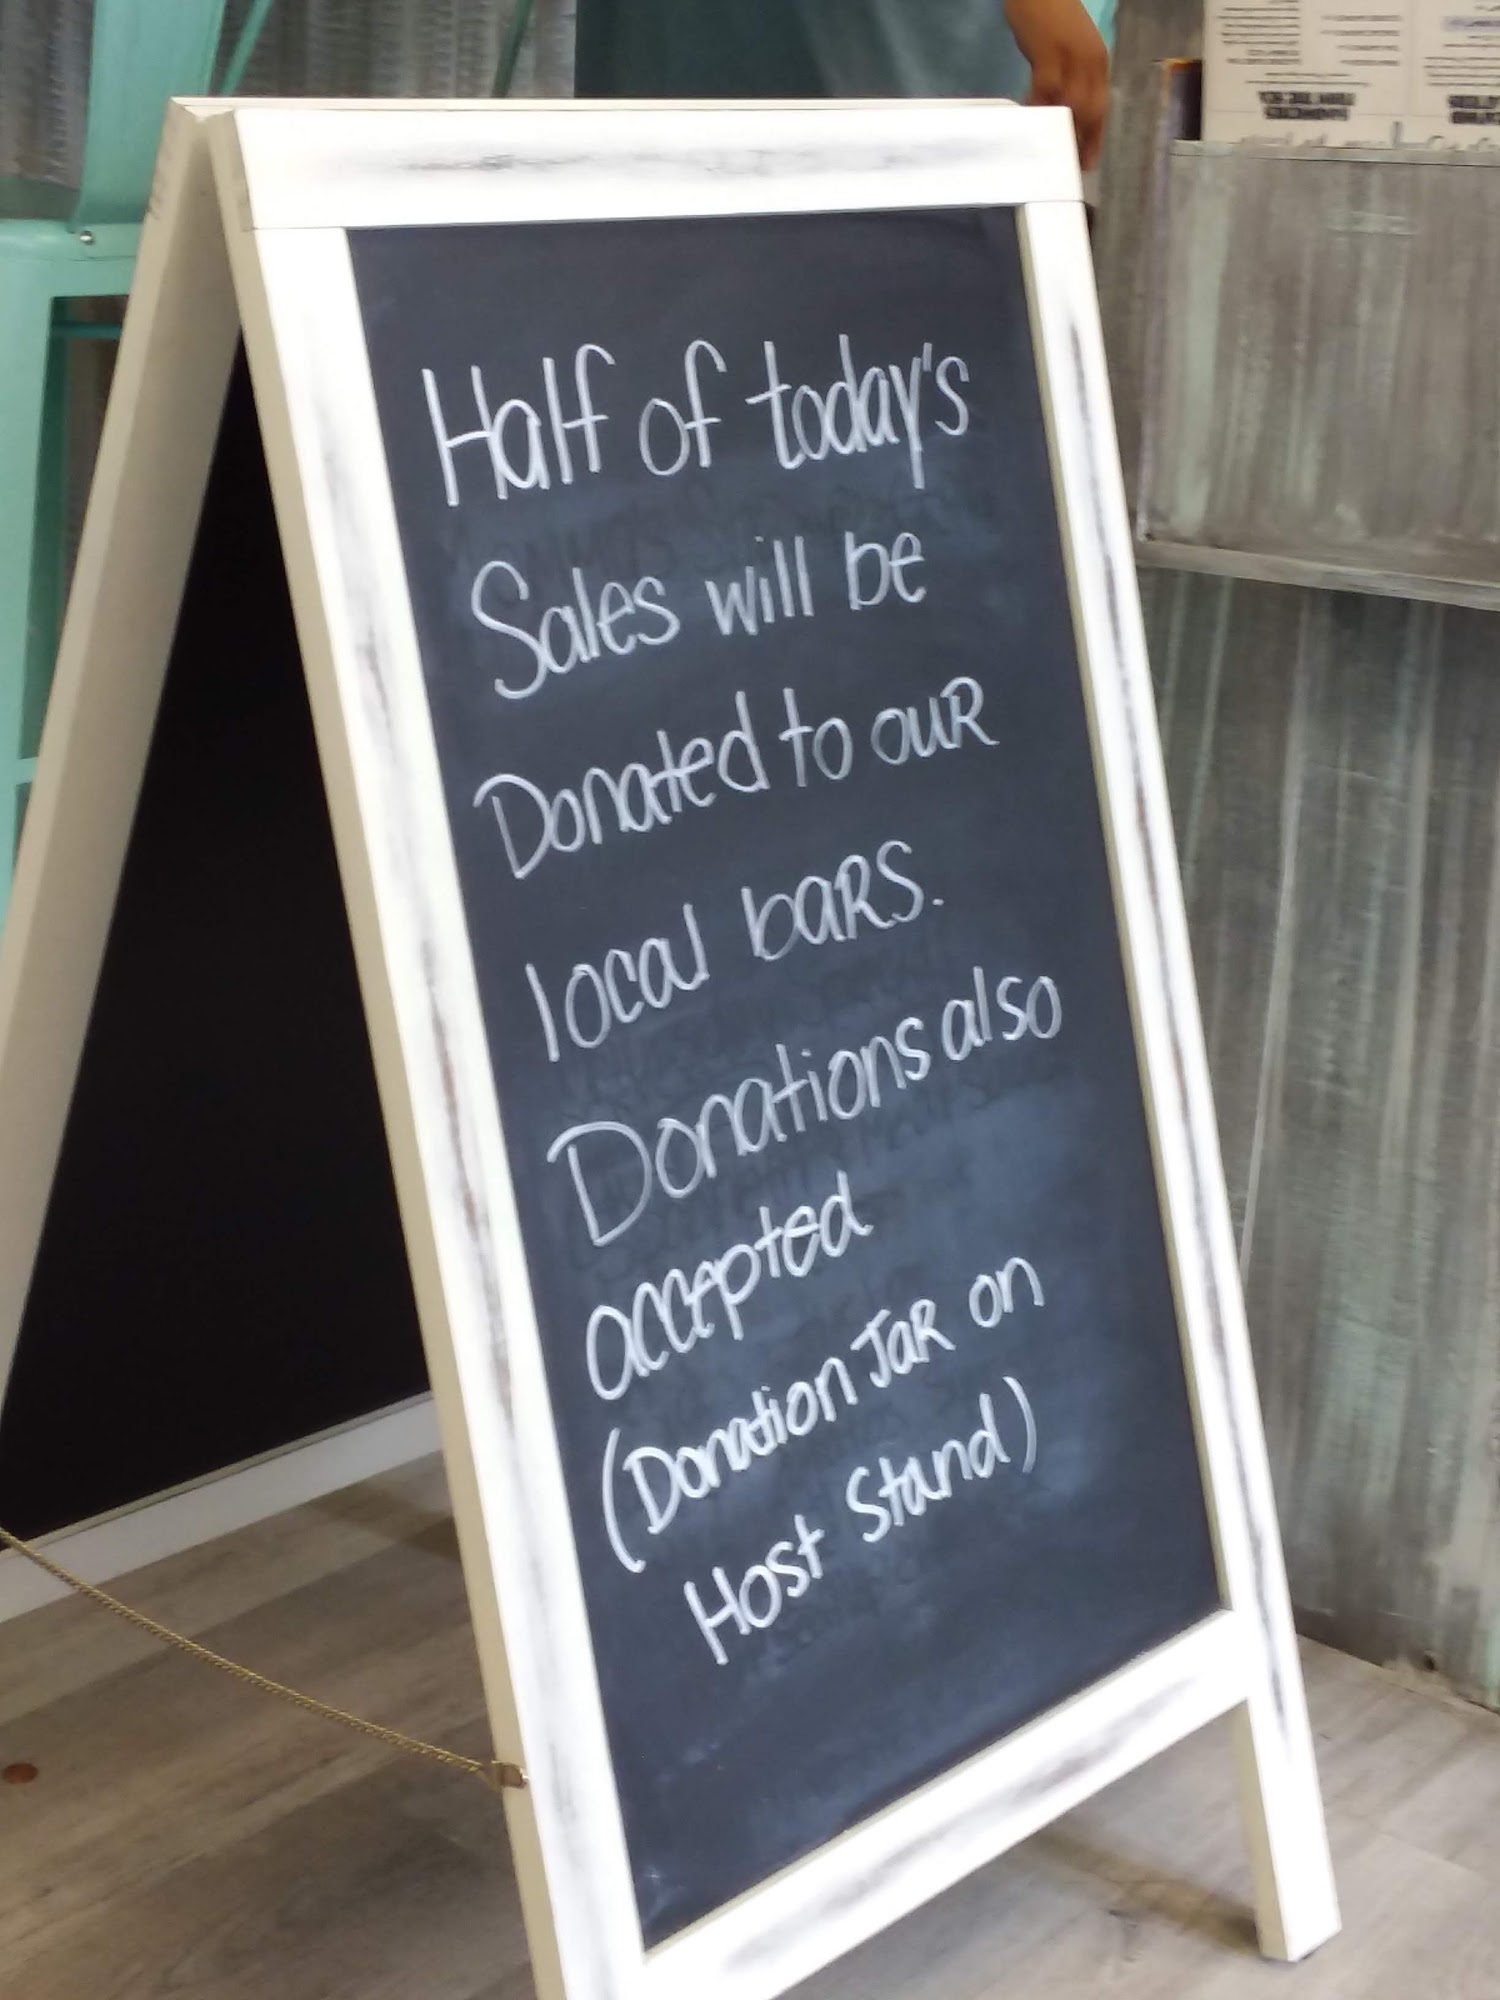 Half of today's
Sales will be
Donated to ouR
local baRS.
Donations also
accepted
(Donation JaR on
Host Stand)